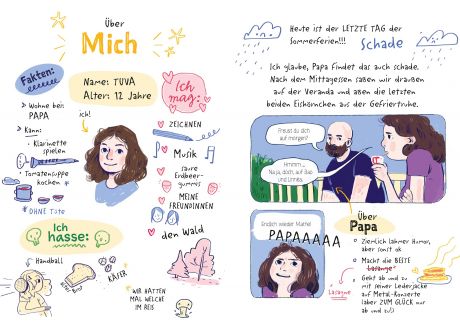 Über
Mich
Fakten:
Name: TUVA
Alter: 12 Jahre
ich!
> Wohne bei
PAPA
> Kann:
• Klarinette
spielen
• Tomatensuppe
kochen
* OHNE Tüte
Ich
mag:
ZEICHNEN
Musik
saure
Erdbeer-
gummis
MEINE
FREUNDINNEN
den Wald
Ich
hasse:
Handball
KÄFER
WIR HATTEN
MAL WELCHE
IM REIS
Heute ist der LETZTE TAG der
Sommerferien!!!
Schade
Ich glaube, Papa findet das auch schade.
Nach dem Mittagessen saßen wir draußen
auf der Veranda und aßen die letzten
beiden Eishörnchen aus der Gefriertruhe.
Freust du dich
auf morgen?
Hmmm ...
Na ja, doch, auf Bao
und Linnéa.
Endlich wieder Mathe!
PAPAAAAA
Über
Papa
• Ziemlich lahmer Humor,
aber sonst ok
• Macht die BESTE
Lasange
Lasagne
• Geht ab und zu
mit seiner Lederjacke
auf Metal-Konzerte
(aber ZUM GLÜCK nur
ab und zu!)